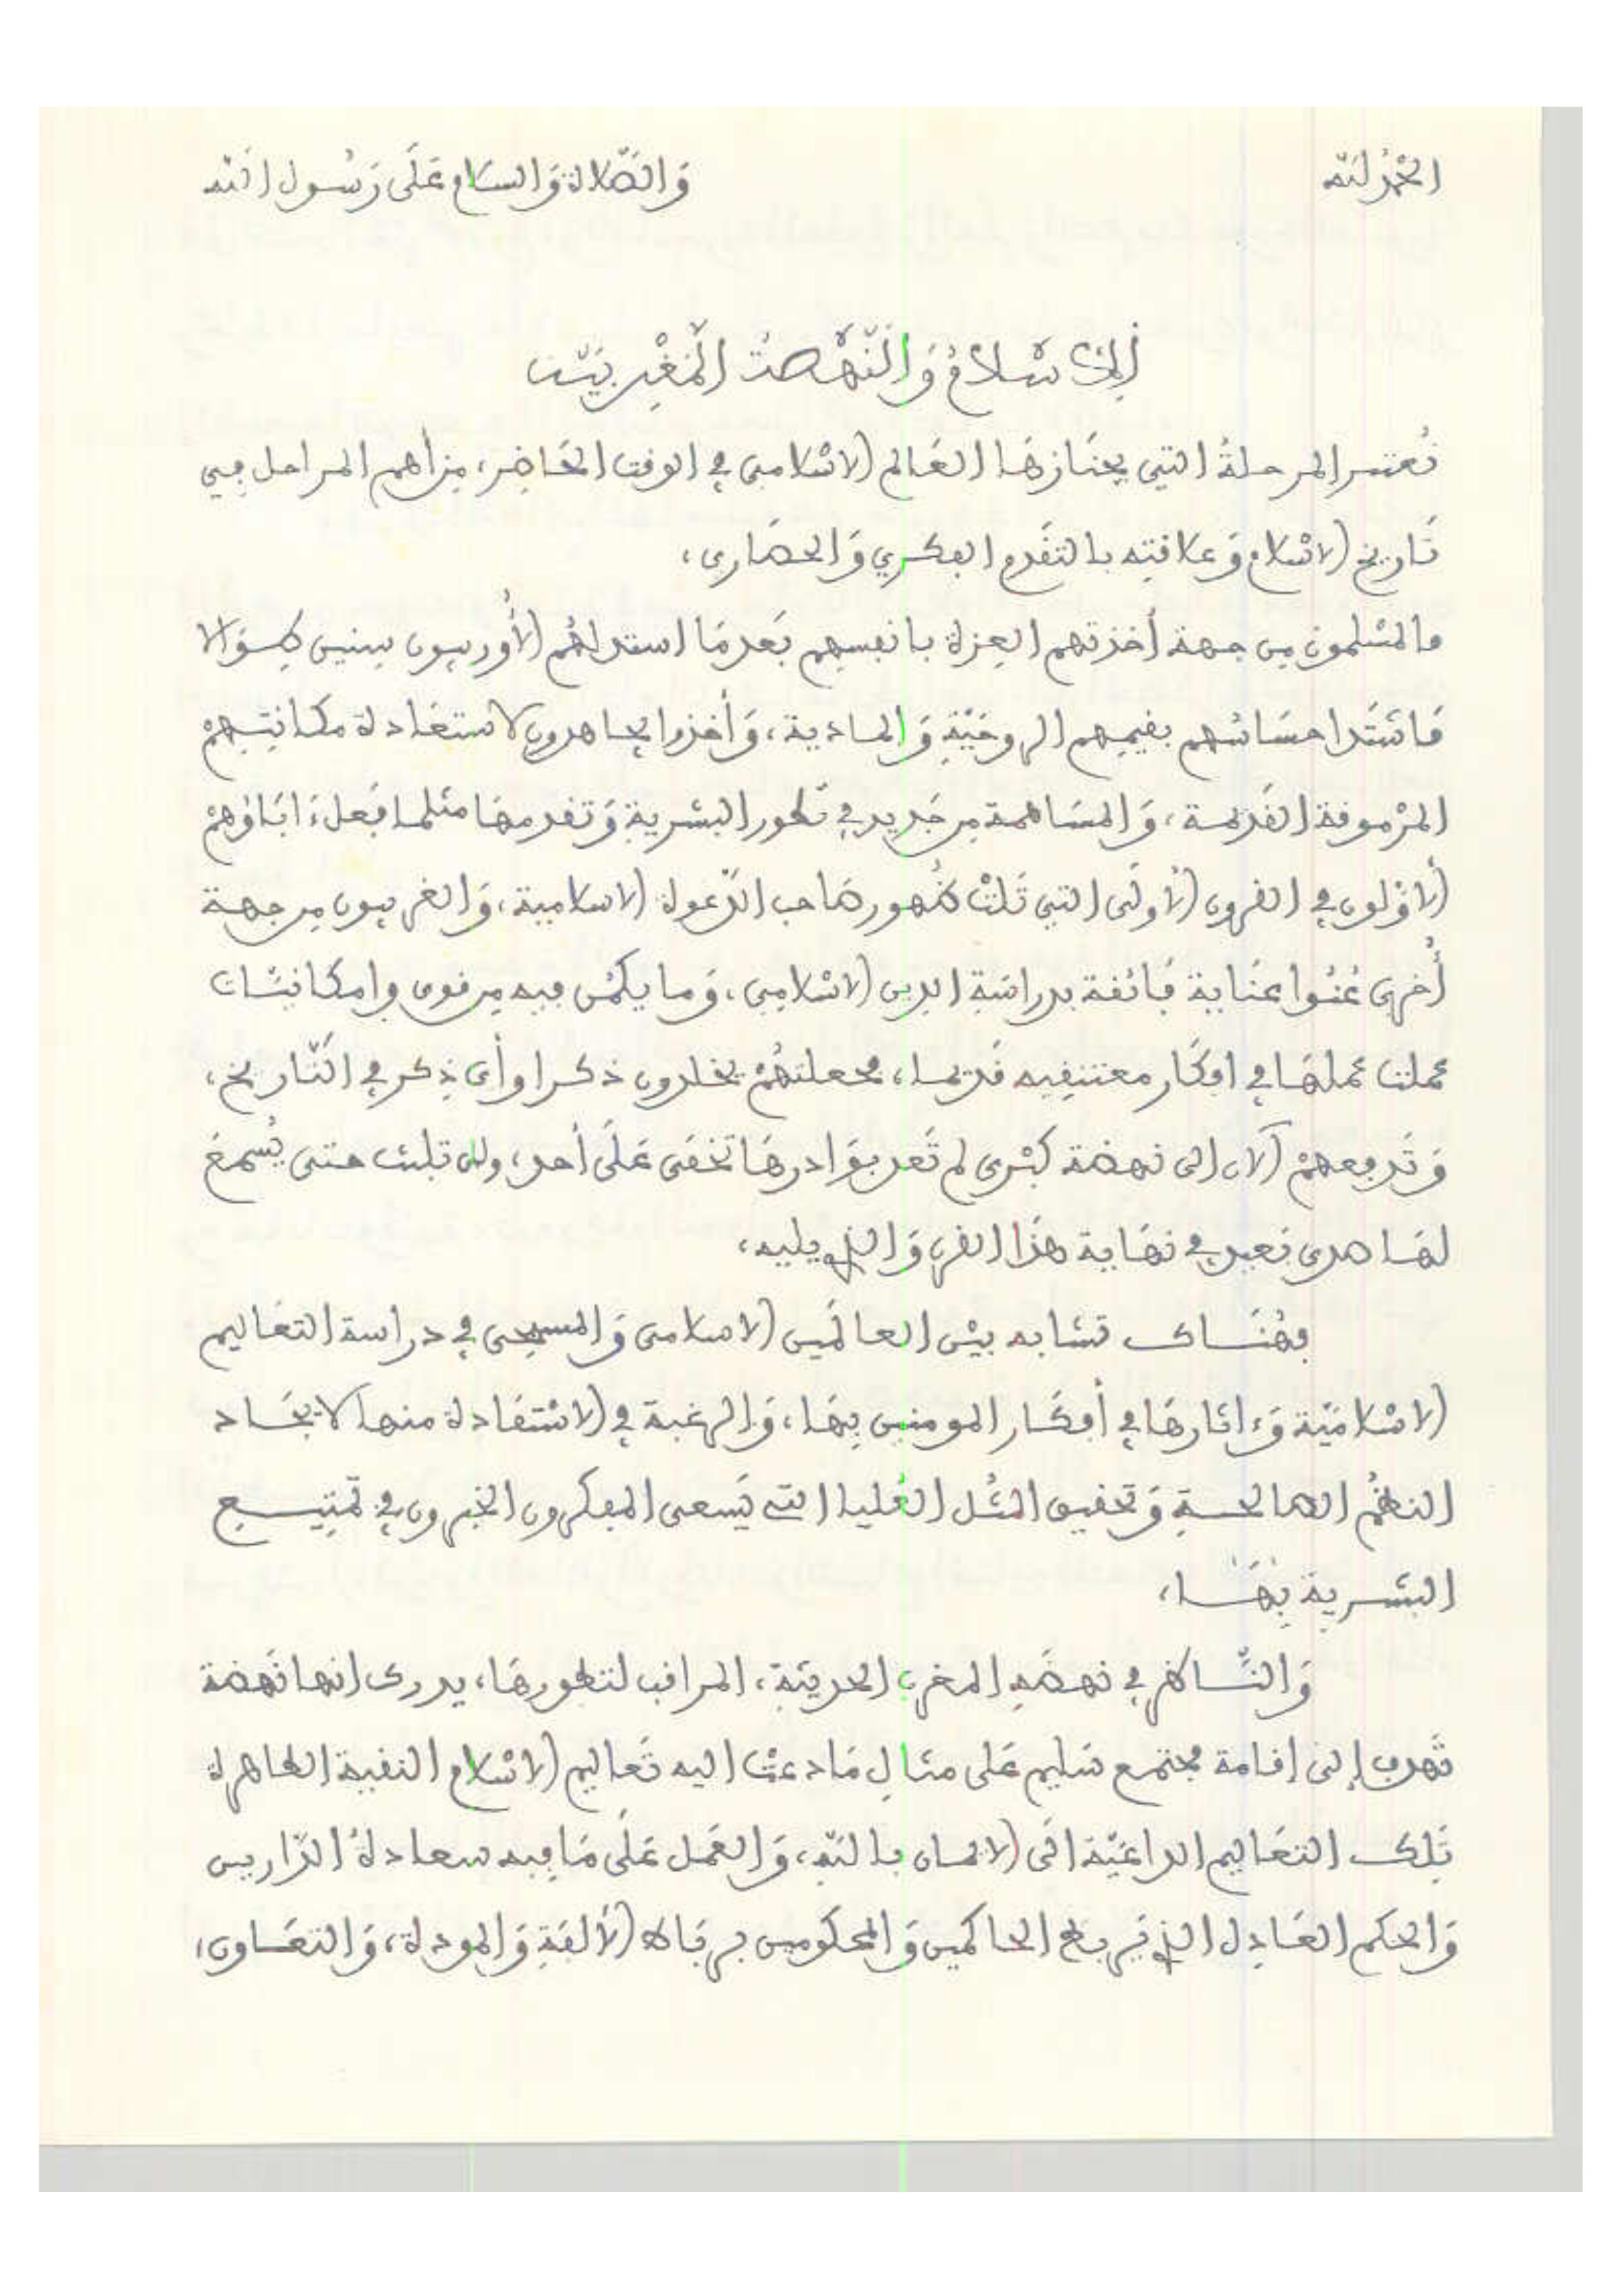 الحمد لله والصلاة والسلام على رسول الله
الإسلام والنهضة المغربية
تعتبر المرحلة التي يجتازها العالم الاسلامي في الوقت الحاضر، من أهم المراحل في
تاريخ الاسلام وعلاقته بالتقدم الفكري والحضاري،
فالمسلمون من جهة أخذتهم العزة بانفسهم بعدما استذلهم الأوربيون سنين طوالا
فاشتد احساسهم بقيمهم الروحية والمادية، وأخذوا يجاهدون لاستعادة مكانتهم
المرموقة القديمة، والمساهمة من جديد في تطور البشرية وتقدمها مثلما فعل ءاباؤهم
الأولون في القرون الأولى التي تلت ظهور صاحب الدعوة الاسلامية، والغربيون من جهة
أخرى عنوا عناية فائقة بدراسة الدين الاسلامي، وما يكمن فيه من قوى وإمكانيات
عملت عملها في افكار معتنقيه قديما، فجعلتهم يخلدون ذكرا وأي ذكر في التاريخ،
وتدفعهم الآن إلى نهضة كبرى لم تعد بوادرها تخفى على أحد، ولن تلبث حتى يسمع
لها صدى بعيد في نهاية هذا القرن والذي يليه،
فهناك تشابه بين العالمين الاسلامي والمسيحي في دراسة التعاليم
الاسلامية وءاثارها في أفكار المومنين بها، والرغبة في الاستفادة منها لايجاد
النظم الصالحة وتحقيق المثل العليا التي يسعى المفكرون الخيرون في تمتيع
البشرية بها،
والناظر في نهضة المغرب الحديثة، المراقب لتطورها، يدرك انها نهضة
تهدف إلى إقامة مجتمع سليم على مثال ما دعت اليه تعاليم الاسلام النقية الطاهرة
تلك التعاليم الداعية الى الايمان بالله، والعمل على ما فيه سعادة الدارين
والحكم العادل الذي يربط الحاكمين والمحكومين برباط الألفة والمودة، والتعاون،